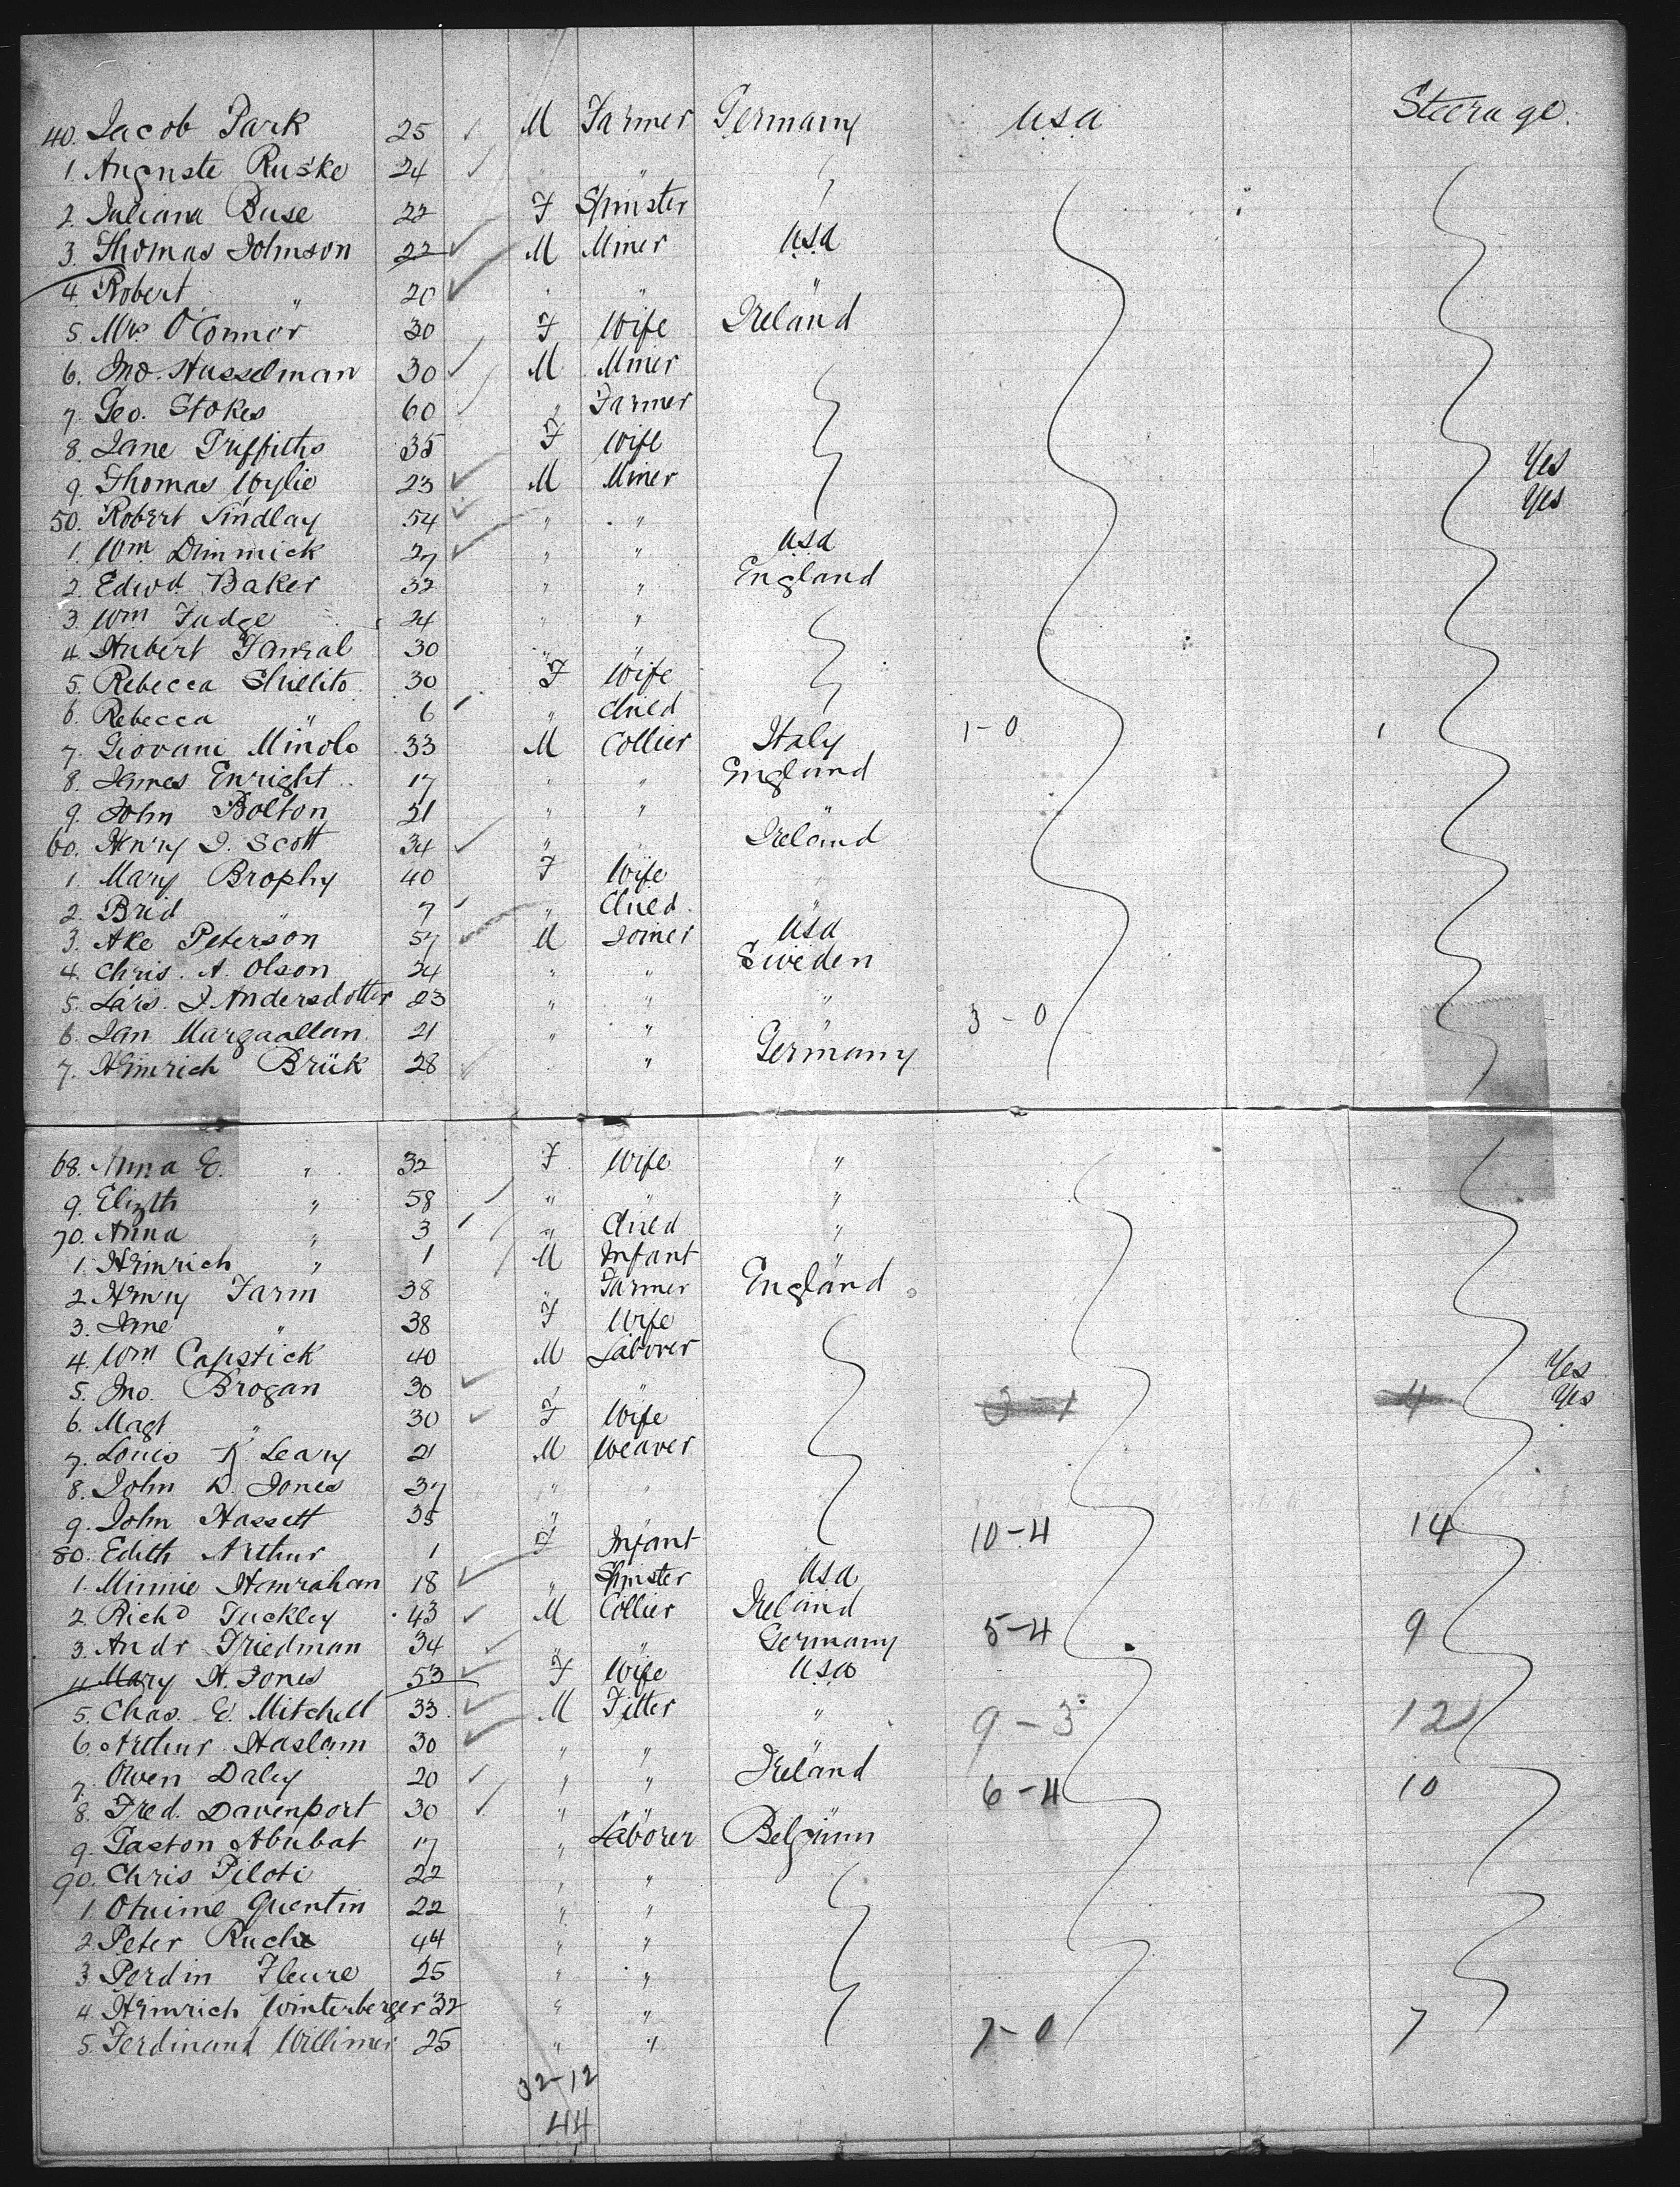 40. Jacob Park 25 M Farmer Germany USA Steerage.
1. Auguste Ruske 24 " "
2. Juliana Buse 22 F Spinster
3. Thomas Johnson 22 M Miner USA
4. Robert " 20 " " "
5. Mrs O'Connor 30 F Wife Ireland
6. Jno. Husselman 30 M Miner
7. Geo. Stokes 60 " Farmer
8. Jane Griffiths 35 F Wife Yes
9. Thomas Wylie 23 M Miner Yes
50. Robert Findlay 54 " "
1. Wm Dimmick 27 " " USA
2. Edwd. Baker 32 " " England
3. Wm Fudge 24 " "
4. Hubert 30 " "
5. Rebecca Shillito 30 F Wife
6. Rebecca " 6 " Child
7. Giovani Minolo 33 M Collier Italy 1-0 1
8. James Enright 17 " " England
9. John Bolton 21 " " "
60. Henry J. Scott 34 " " Ireland
1. Mary Brophy 40 F Wife "
2. Brid " 7 " Child "
3. Ake Peterson 57 M Joiner USA
4. Chris. A. Olson 24 " " Sweden
5. Lars. J. Andersdotter 23 " " "
6. Jan 21 " " " 3-0
7. Heinrich Brük 28 " Germany
68. Anna E. " 32 F Wife "
9. Elizth " 58 " " "
70. Anna " 3 " Child "
1. Heinrich " 1 M Infant "
2. Henry Farm 38 " Farmer England
3. Jane " 38 F Wife
4. Wm Capstick 40 M Laborer Yes
5. Jno. Brogan 30 " " 4 Yes
6. Magt " 30 F Wife
7. Louis K Leary 21 M Weaver
8. John D. Jones 37 " "
9. John Hassett 35 " " 10-4 14
80. Edith Arthur 1 F Infant
1. Minnie Hanrahan 18 " Spinster USA
2. Richd Tuckley 43 M Collier Ireland 5-4 9
3. Andr Friedman 34 " " Germany
4. Mary H. Jones 53 F Wife USA
5. Chas. E. Mitchell 33 M Fitter " 9-3 12
6. Arthur Haslam 30 " " "
7. Owen Daley 20 " " Ireland
8. Fred. Davenport 30 " " " 6-4 10
9. Gaston Abubat 17 " Laborer Belgium
90. Chris Piloti 22 " "
1. Quentin 22 " "
2. Peter Ruche 44 " "
3. Perdin Fleure 25 " "
4. Heinrich Winterberger 32 " "
5. Ferdinand Willimer 25 " " 7-0 7
32-12
44